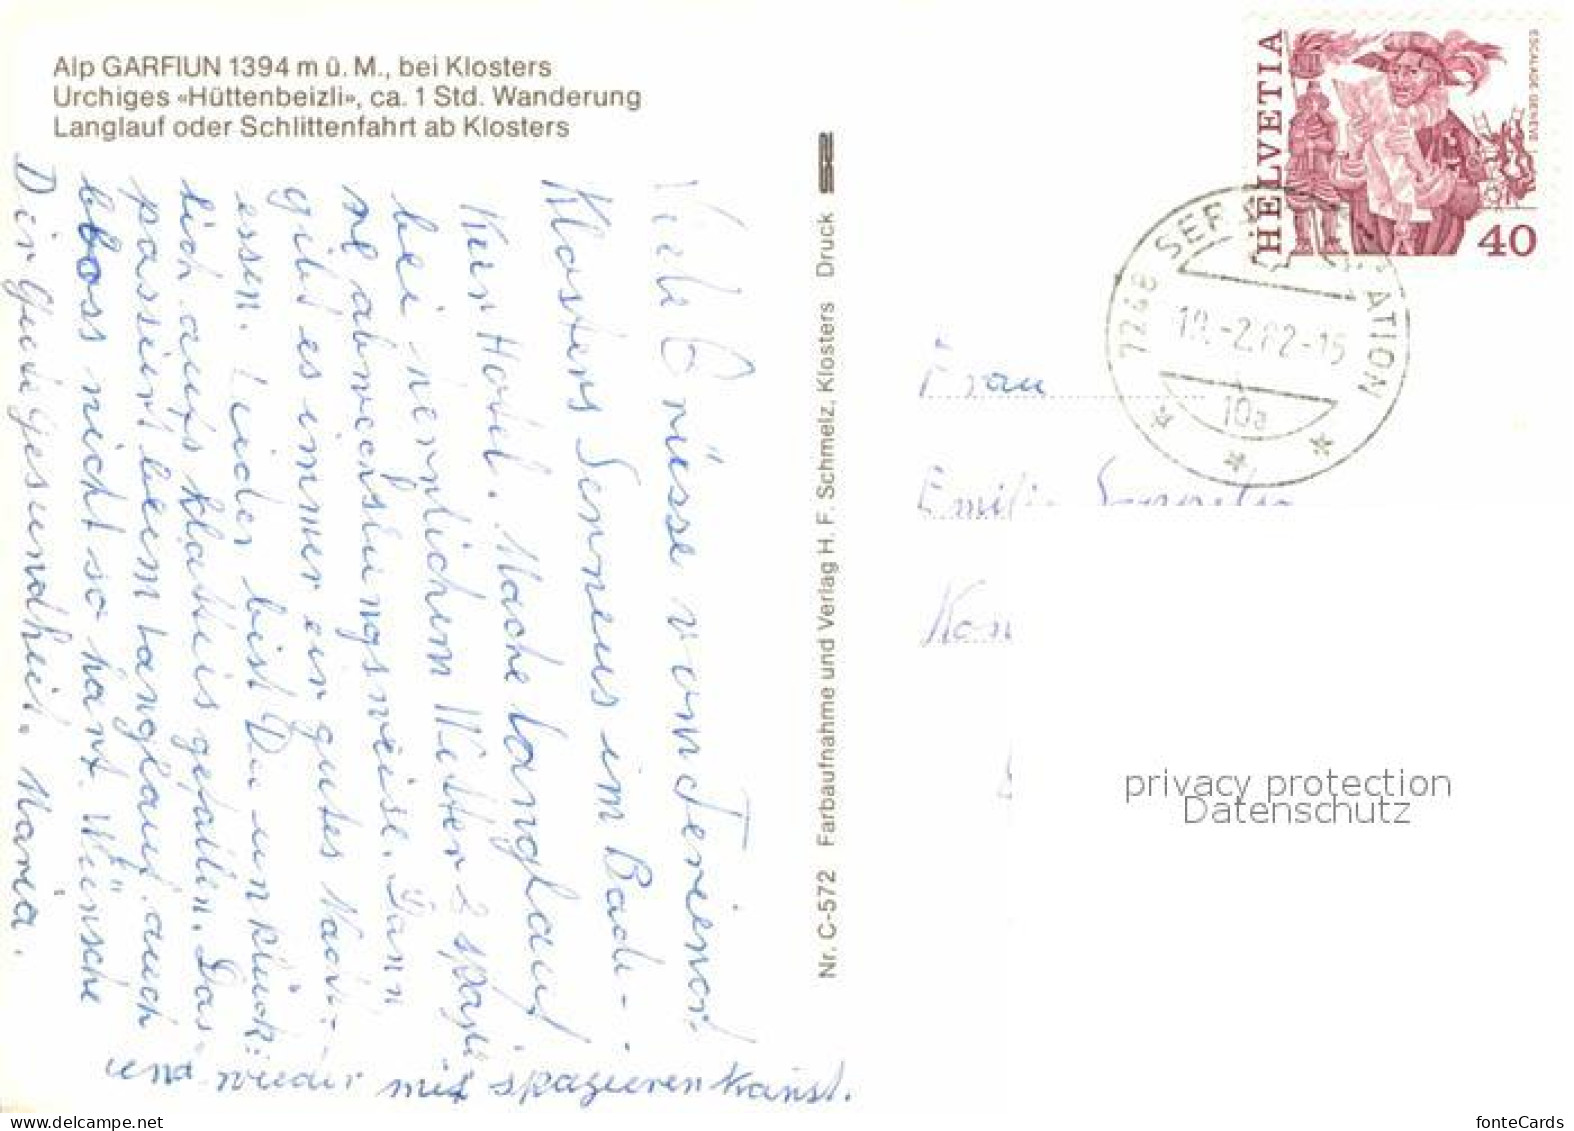 Alp GARFIUN 1394 m ü. M., bei Klosters
Urchiges «Hüttenbeizli», ca. 1 Std. Wanderung
Langlauf oder Schlittenfahrt ab Klosters
Viele Grüsse vom Ferienort
Klosters Serneus im Bade-
Kur Hotel. Mache Langlauf
bei herrlichem Wetter &
abwechslungsweise. Dann
gibt es immer ein gutes Nacht-
essen. Leider bist Du unglück-
lich aufs gefallen. Das
passiert beim Langlauf auch
bloss nicht so hart. Wünsche
Dir Gute Gesundheit.
und wieder mit spazieren kannst.
Maria.
Nr. C-572 Farbaufnahme und Verlag H. F. Schmelz, Klosters Druck
HELVETIA
ESCALADE GENÈVE
40
7248 SER ATION
-2.82-15
10a
Frau
privacy protection
Datenschutz
fonteCards